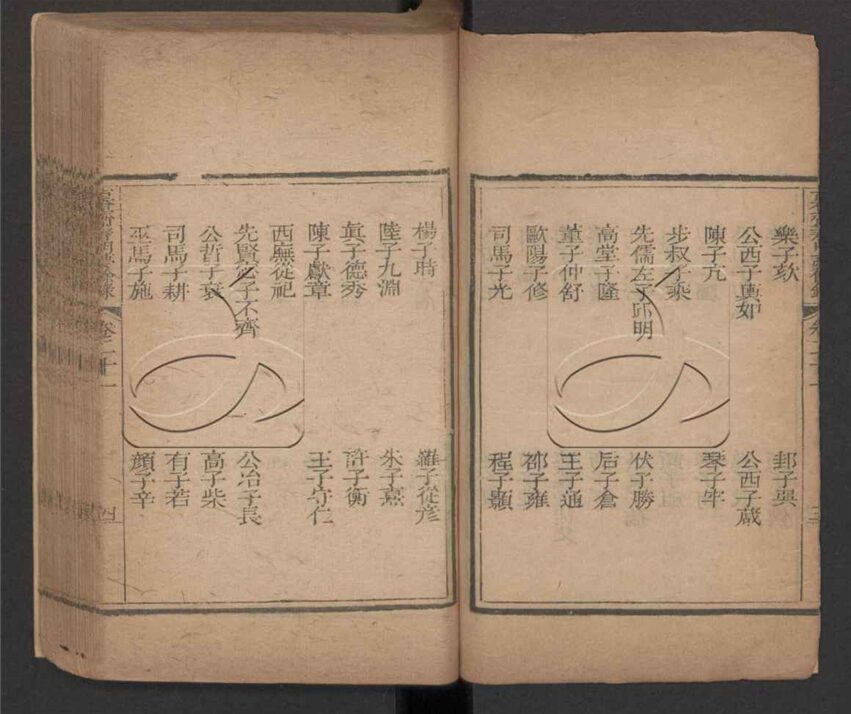 樂子欬 邽子巽
公西子輿如 公西子蒧
陳子亢 琴子牢
步叔子乘
先儒左子邱明 伏子勝
高堂子隆 后子倉
董子仲舒 王子通
歐陽子修 邵子雍
司馬子光 程子顥
楊子時 羅子從彥
陸子九淵 朱子熹
眞子德秀 許子衡
陳子獻章 王子守仁
西廡從祀
先賢宓子不齊 公冶子長
公晳子哀 高子柴
司馬子耕 有子若
巫馬子施 顏子辛
卷二十一
四